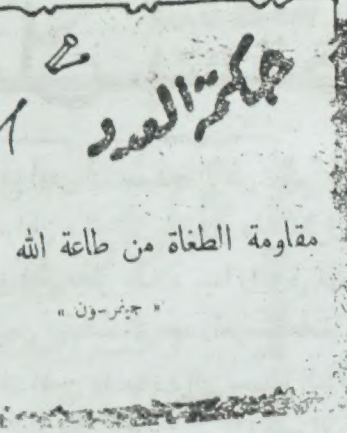 حكمة العدد
مقاومة الطغاة من طاعة الله
« جيفرسون »